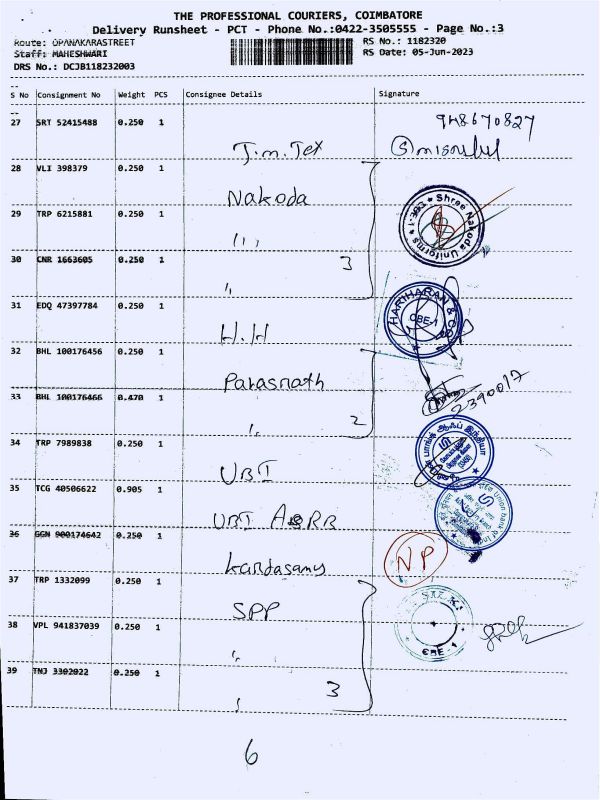 THE PROFESSIONAL COURIERS, COIMBATORE
Delivery Runsheet - PCT - Phone No.:0422-3505555 - Page No.:3
Route: OPANAKARASTREET
RS No.: 1182320
Staff: MAHESHWARI
RS Date: 05-Jun-2023
DRS No.: DCJB118232003
S No Consignment No Weight PCS Consignee Details Signature
27 SRT 52415488 0.250 1
J.m.Tex
28 VLI 398379 0.250 1
Nakoda
29 TRP 6215881 0.250 1
Shree Nakoda Uniforms ★ CBE-1 ★
30 CNR 1663605 0.250 1
3
31 EDQ 47397784 0.250 1
H.H
HARIHARAN & CO
CBE-1
32 BHL 100176456 0.250 1
Parasnath
33 BHL 100176466 0.470 1
2
34 TRP 7989838 0.250 1
UBI
35 TCG 40506622 0.905 1
UBI
Union bank of
36 GGN 900174642 0.250 1
NP
Kandasamy
37 TRP 1332099 0.250 1
SPP
38 VPL 941837039 0.250 1
CBE - 1
39 TNJ 3302022 0.250 1
3
6